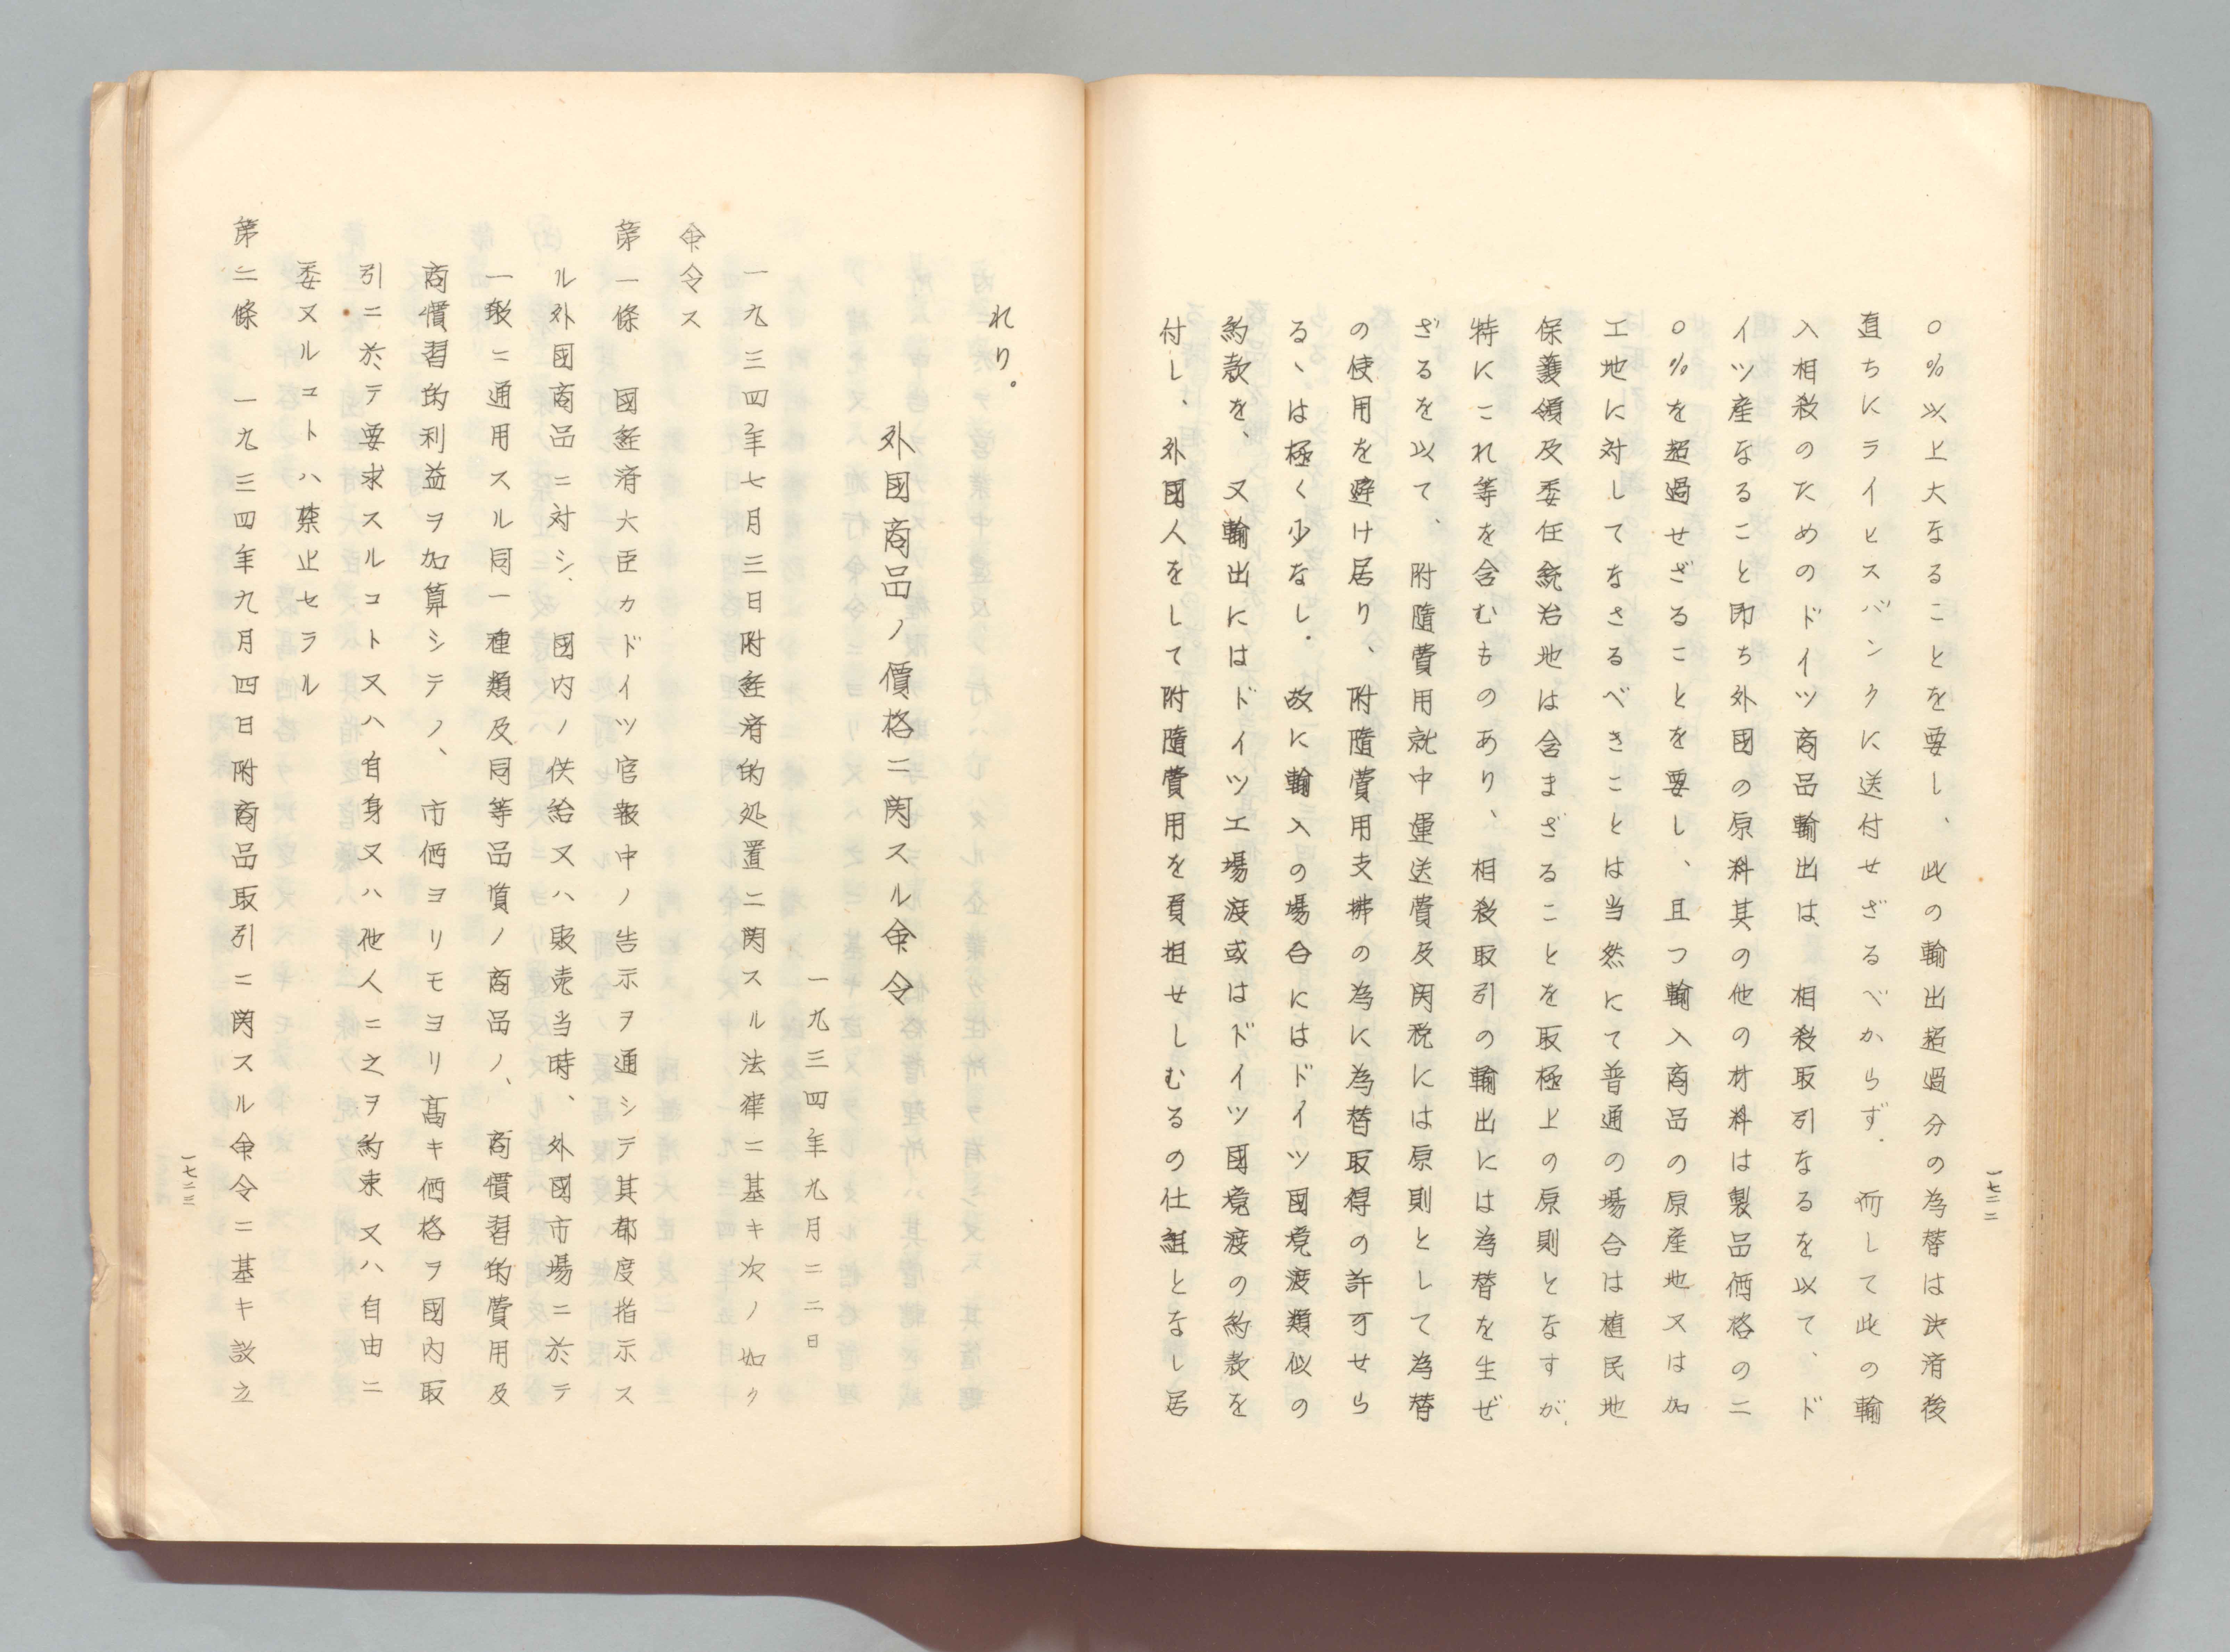 〇％以上大なることを要し、此の輸出超過分の為替は決済後
直ちにライヒスバンクに送付せざるべからず．而して此の輸
入相殺のためのドイツ商品輸出は、相殺取引なるを以て、ド
イツ産なること即ち外国の原料其の他の材料は製品価格の二
〇％を超過せざることを要し、且つ輸入商品の原産地又は加
工地に対してなさるべきことは当然にて普通の場合は植民地
保護領及委任統治地は含まざることを取極上の原則となすが、
特にこれ等を含むものあり、相殺取引の輸出には為替を生ぜ
ざるを以て、附随費用就中運送費及関税には原則として為替
の使用を避け居り、附随費用支拂の為に為替取得の許可せら
るゝは極く少なし．故に輸入の場合にはドイツ國境渡類似の
約款を、又輸出にはドイツ工場渡或はドイツ國境渡の約款を
付し、外國人をして附隨費用を負担せしむるの仕組となし居
一七二二
れり。
外國商品ノ價格ニ関スル命令
一九三四年九月二二日
一九三四年七月三日附経済的処置ニ関スル法律ニ基キ次ノ如ク
命令ス
第一條　國経済大臣カドイツ官報中ノ告示ヲ通シテ其都度指示ス
ル外國商品ニ対シ、國内ノ供給又ハ販売当時、外國市場ニ於テ
一般ニ通用スル同一種類及同等品質ノ商品ノ、商慣習的費用及
商慣習的利益ヲ加算シテノ、市価ヨリモヨリ高キ価格ヲ國内取
引ニ於テ要求スルコト又ハ自身又ハ他人ニ之ヲ約束又ハ自由ニ
委ヌルコトハ禁止セラル
第二條　一九三四年九月四日附商品取引ニ関スル命令ニ基キ設立
一七二三